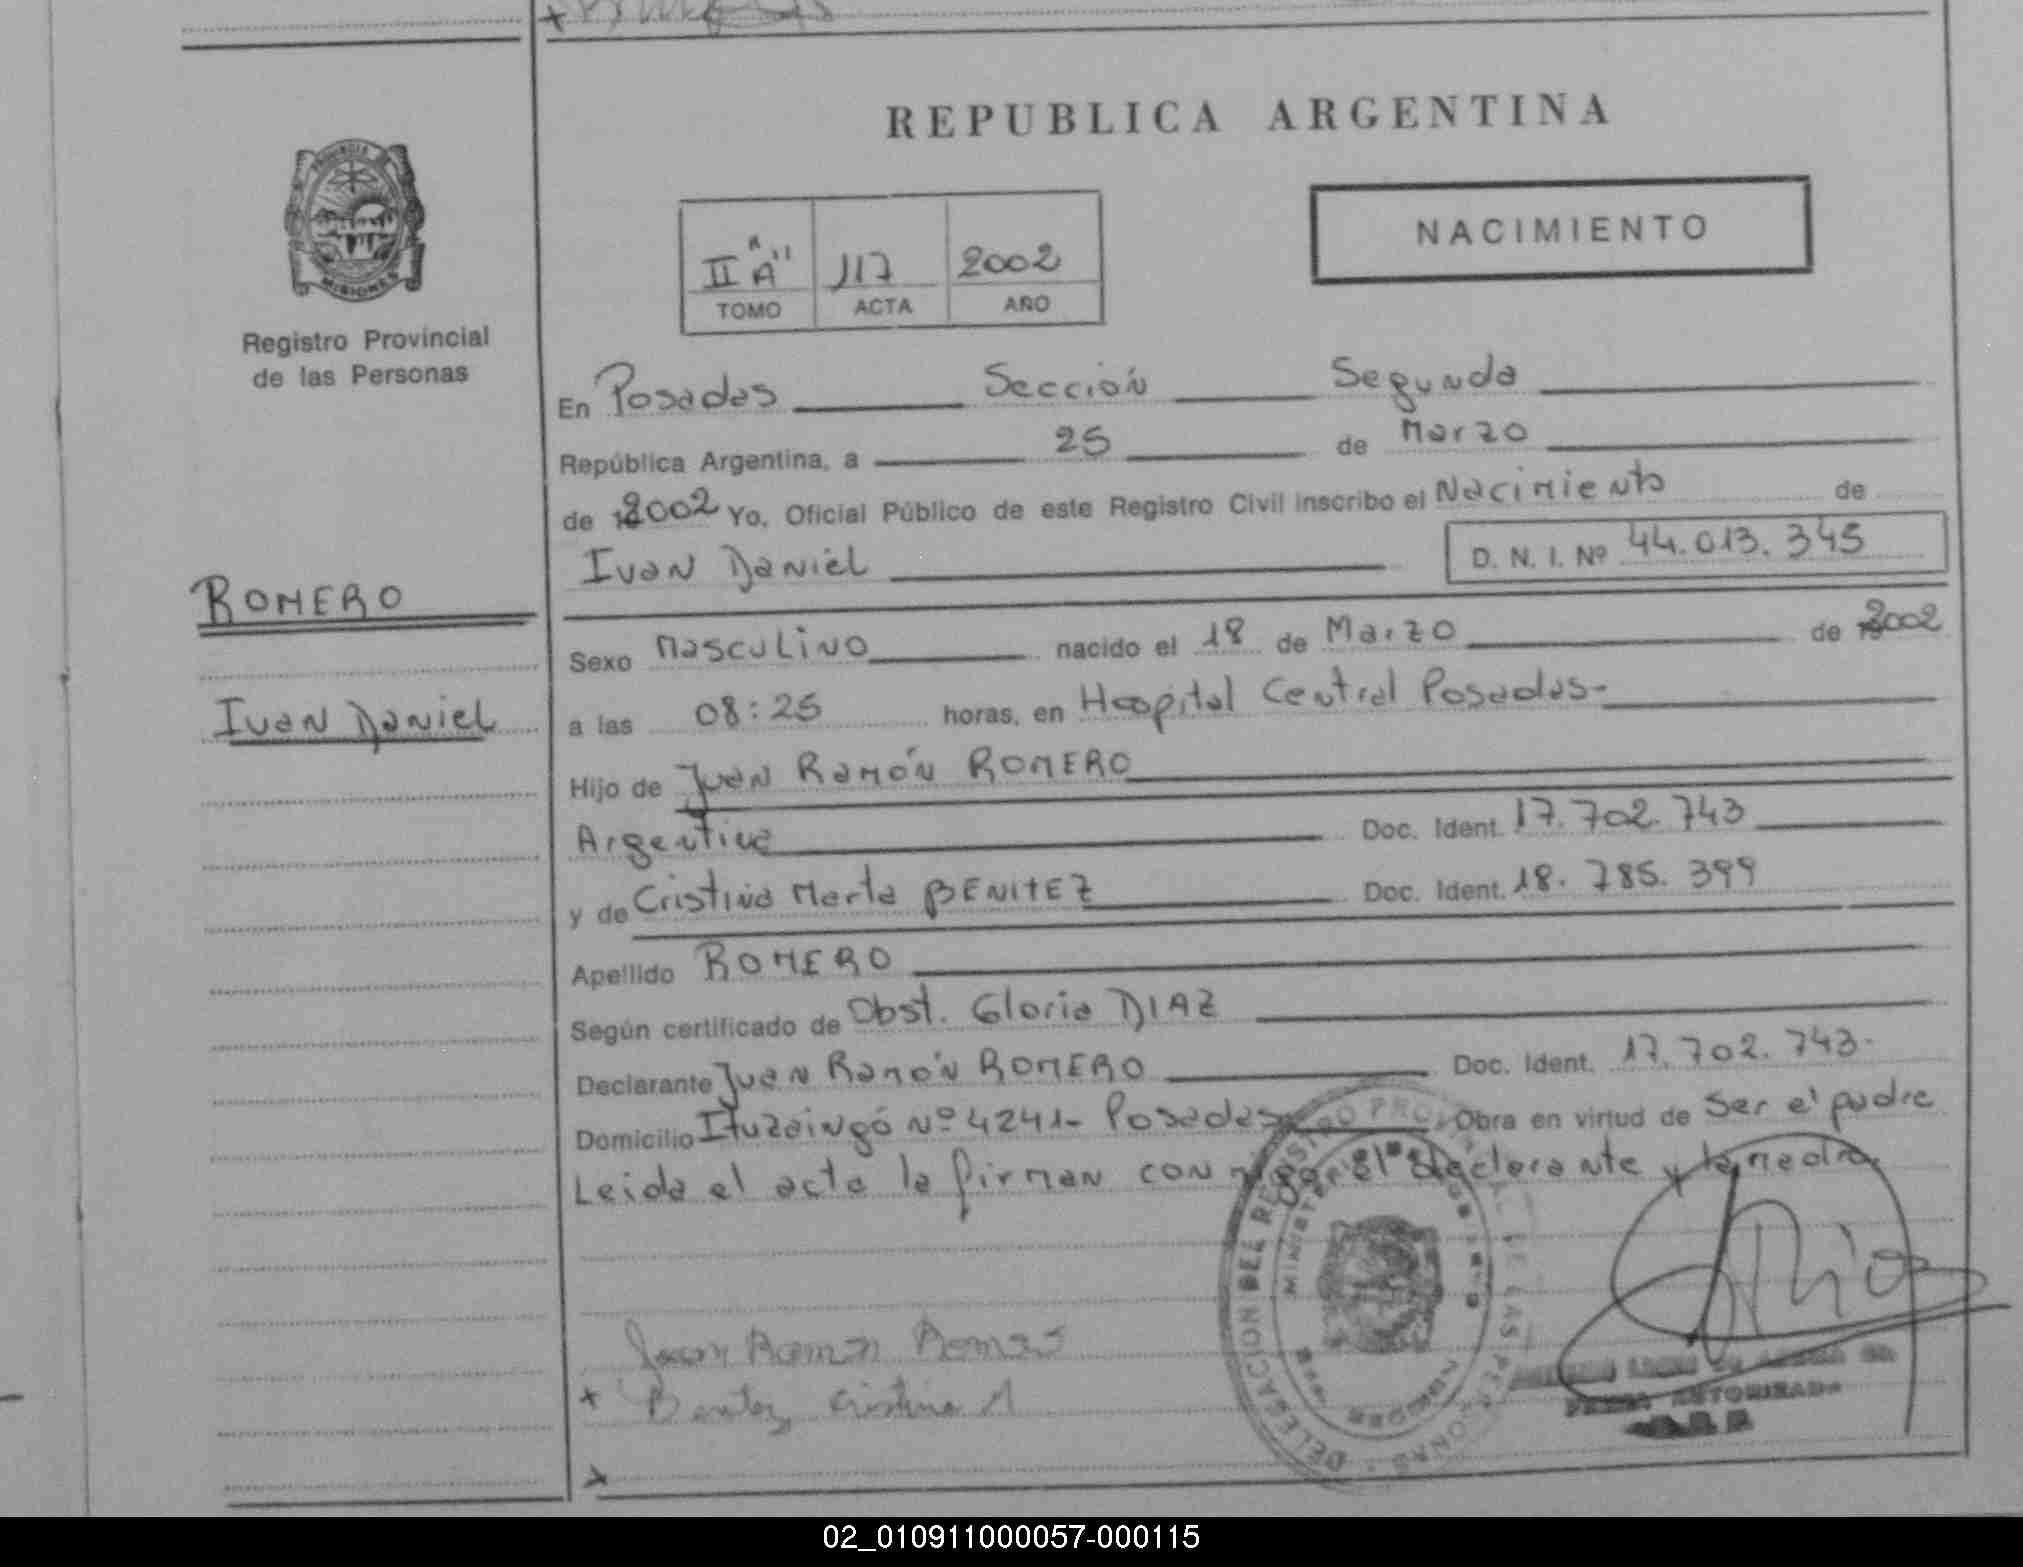 REPUBLICA ARGENTINA
PROVINCIA DE
MISIONES
Registro Provincial
de las Personas
NACIMIENTO
II "A" 117 2002
TOMO ACTA AÑO
En Posadas Sección Segunda
República Argentina, a 25 de Marzo
de 2002 Yo, Oficial Público de este Registro Civil inscribo el Nacimiento de
Ivan Daniel D. N. I. Nº 44.013.345
ROMERO
Ivan Daniel
Sexo Masculino nacido el 18 de Marzo de 2002
a las 08:25 horas, en Hospital Central Posadas-
Hijo de Juan Ramón ROMERO
Argentina Doc. Ident. 17.702.743
y de Cristina Marta BENITEZ Doc. Ident. 18.785.399
Apellido ROMERO
Según certificado de Obst. Gloria DIAZ
Declarante Juan Ramón ROMERO Doc. Ident. 17.702.743.
Domicilio Ituzaingó Nº 4241- Posadas Obra en virtud de Ser el padre
Leida el acta la firman con el declarante y la madre.
DELEGACION DEL REGISTRO PROVINCIAL DE LAS PERSONAS
MINISTERIO DE GOBIERNO
Juan Ramon Romero
x Benitez Cristina M
x
FIRMA AUTORIZADA
02_010911000057-000115